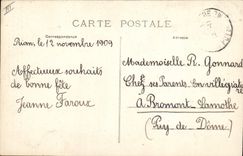 CARTE POSTALE
Correspondance
Riom, le 12 novembre 1909
Affectueux souhaits
de bonne fête
Jeanne Faroux
Mademoiselle R. Gonnard
Chez ses Parents en villégiature
à Bromont-Lamothe
(Puy-de-Dôme)